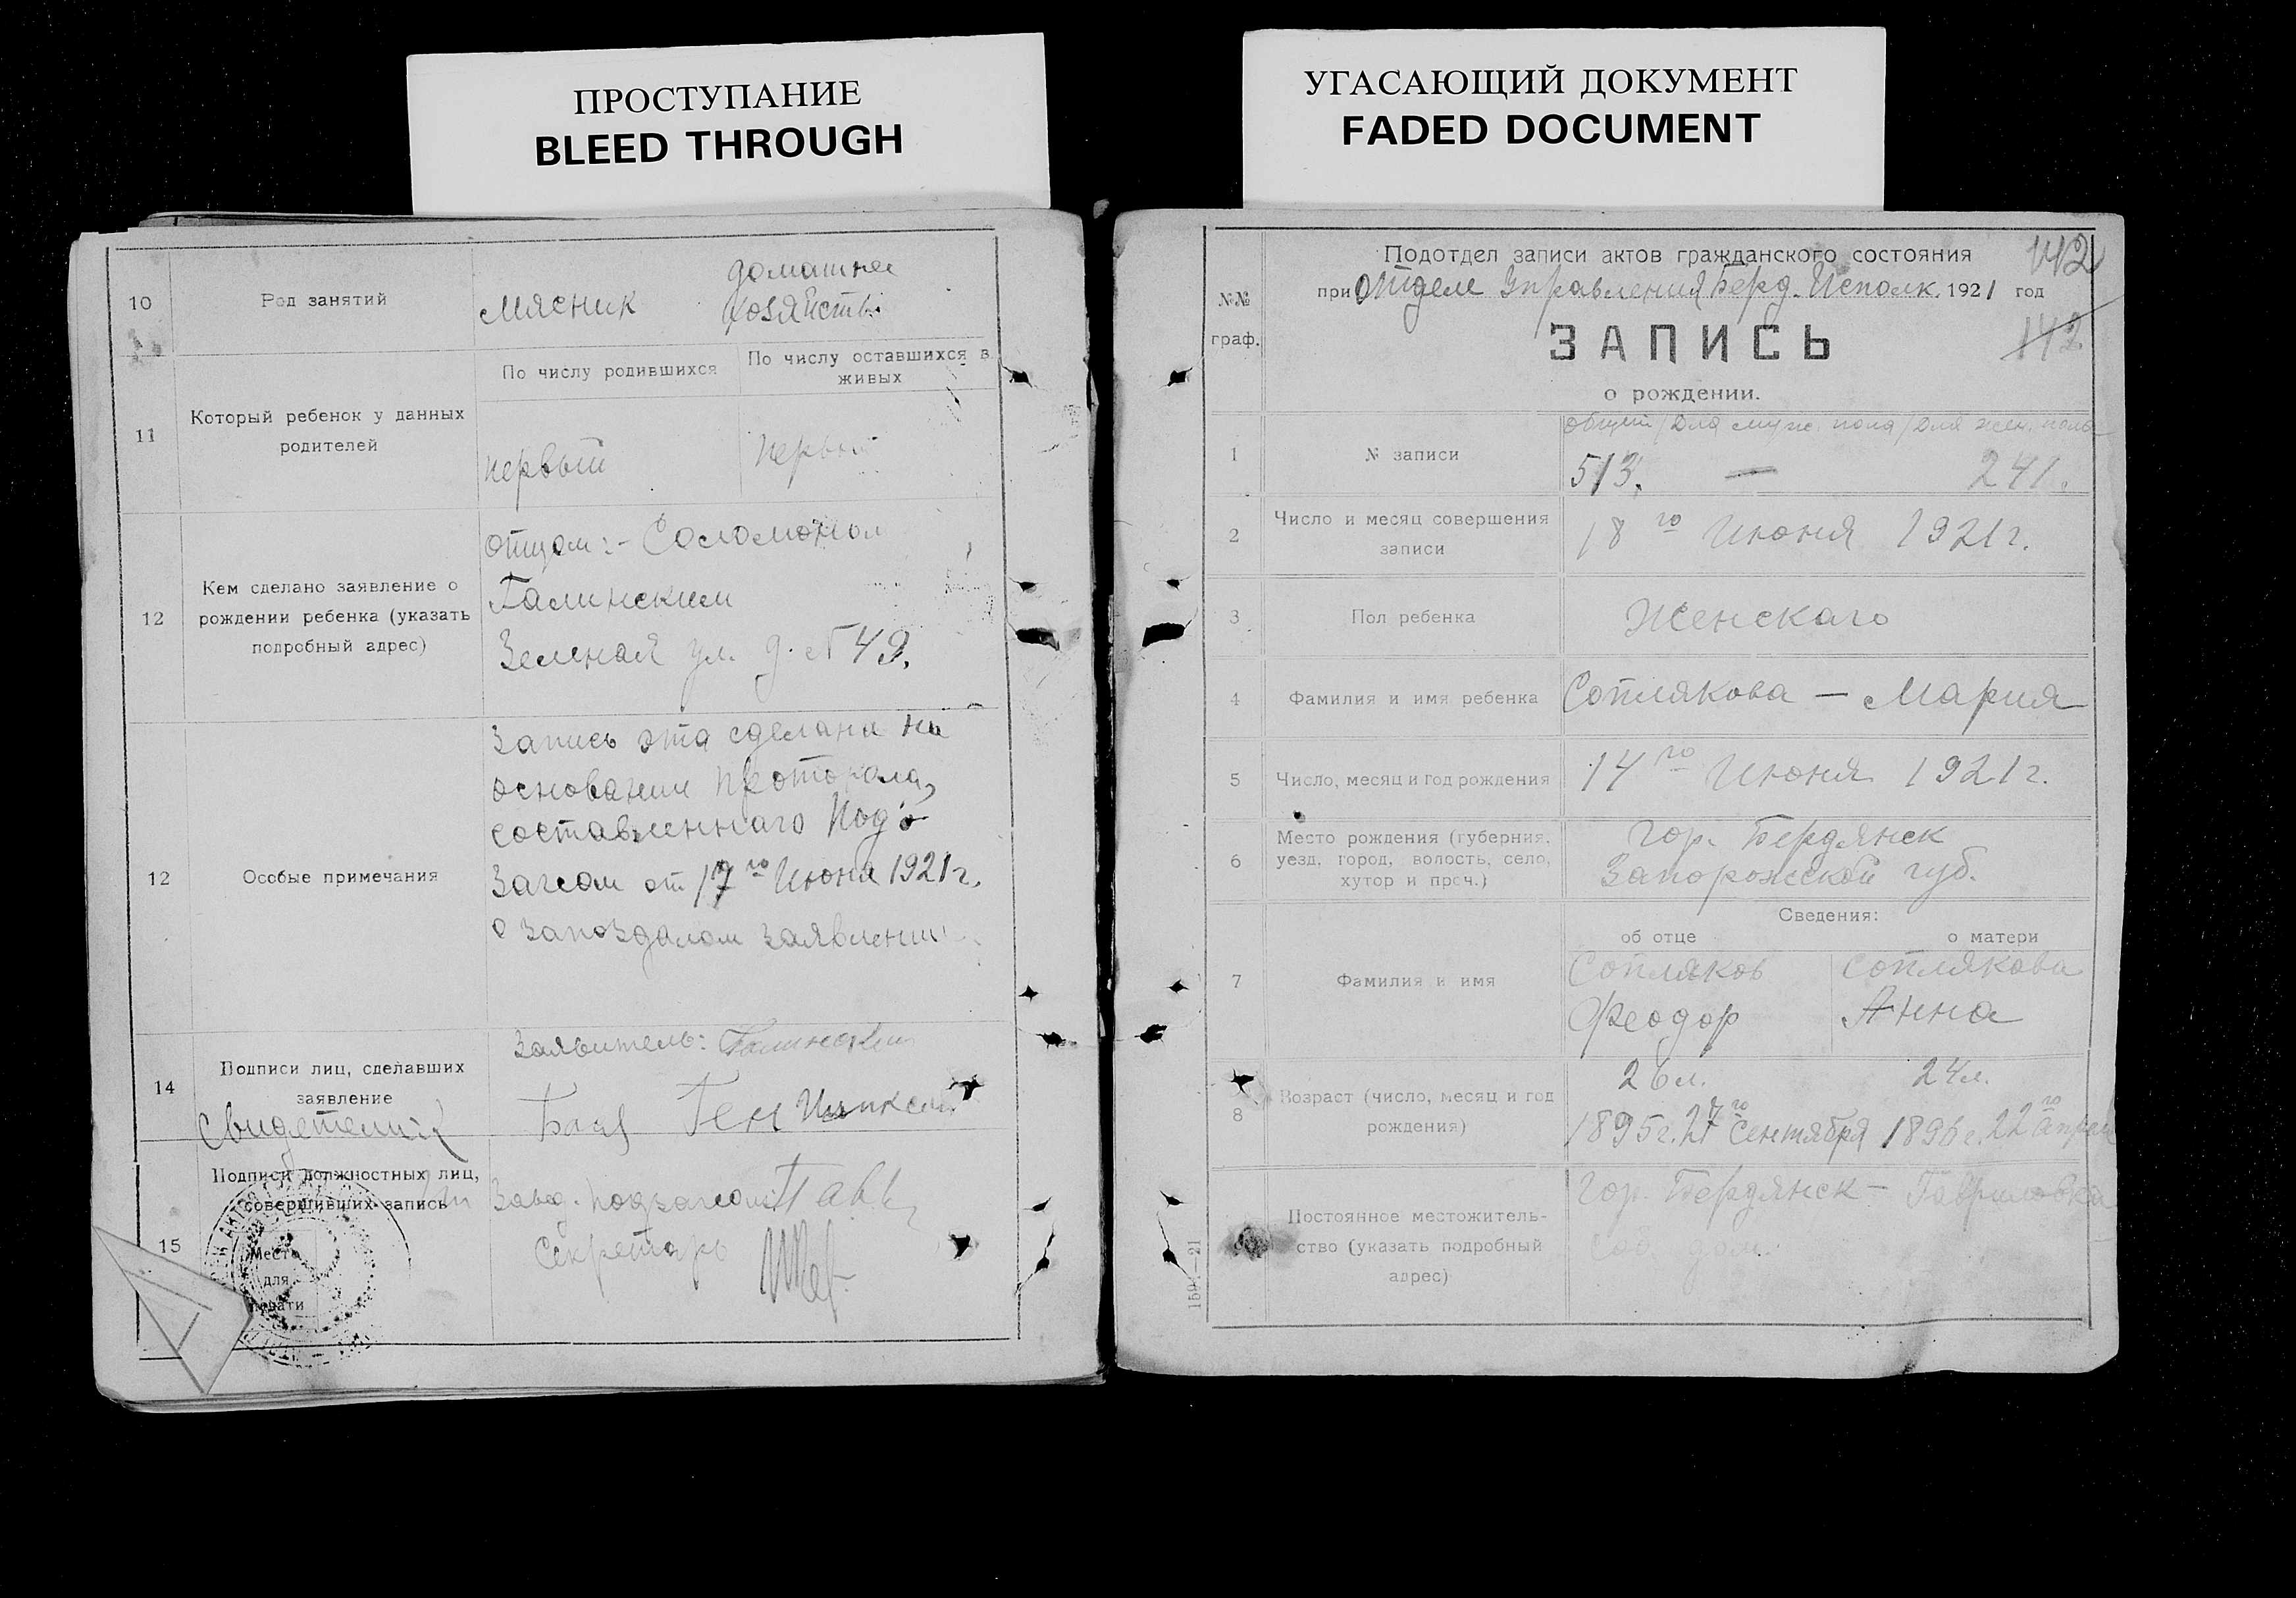 ПРОСТУПАНИЕ
BLEED THROUGH
УГАСАЮЩИЙ ДОКУМЕНТ
FADED DOCUMENT
10
Род занятий
мясник
домашнее
хозяйство
11
Который ребенок у данных
родителей
По числу родившихся
По числу оставшихся в
живых
первый
первый
12
Кем сделано заявление о
рождении ребенка (указать
подробный адрес)
отцом:- Соломоном
Галинским
Зеленая ул. д. № 49.
12
Особые примечания
Запись эта сделана на
основании протокола,
составленнаго Под'о
Загсом от 17го Июня 1921г.
о запоздалом заявлении
14
Подписи лиц, сделавших
заявление
Свидетели
Заявитель: Галинский
15
Подписи должностных лиц,
совершивших запись
Место
для
печати
Завед. подзагсом
Секретарь
Подотдел записи актов гражданского состояния
142
при Отделе Управления Берд. Исполк. 1921 год
№№
граф.
142
ЗАПИСЬ
о рождении.
1
№ записи
общий / Для муж. пола / Для жен. пола
513. — 241.
2
Число и месяц совершения
записи
18го Июня 1921г.
3
Пол ребенка
Женскаго
4
Фамилия и имя ребенка
Соплякова — Мария
5
Число, месяц и год рождения
14го Июня 1921г.
6
Место рождения (губерния,
уезд, город, волость, село,
хутор и проч.)
гор. Бердянск
Запорожской губ.
Сведения:
об отце
о матери
7
Фамилия и имя
Сопляков
Феодор
Соплякова
Анна
8
Возраст (число, месяц и год
рождения)
26л.
24л.
1895г. 27го Сентября
1896г. 22го апреля
Постоянное местожитель-
ство (указать подробный
адрес)
Гор. Бердянск — Гавриловка